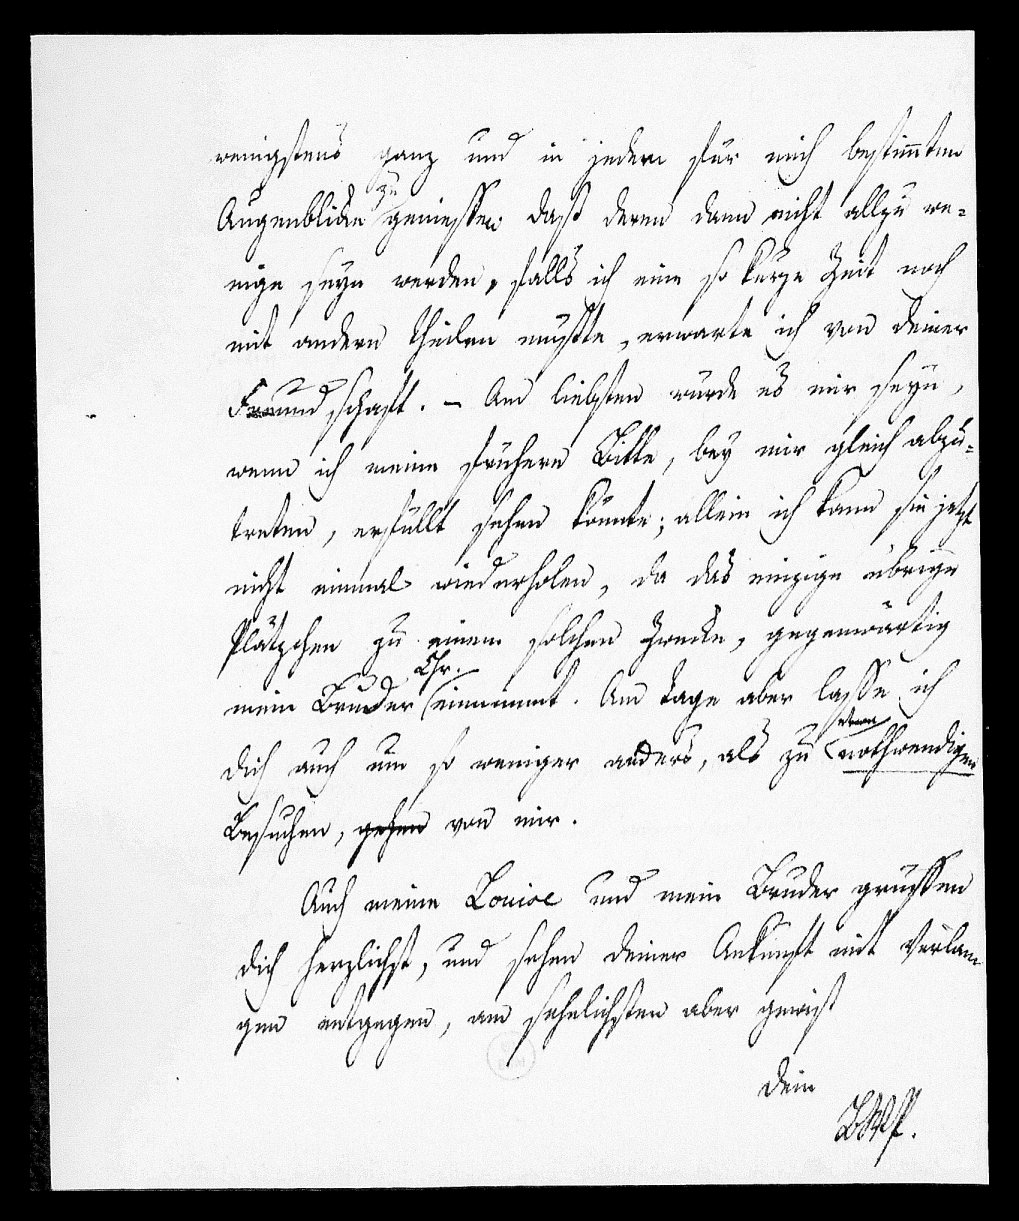 wenigstens ganz und in jedem für mich bestimmten
Augenblicke zu geniessen. Daß deren dann nicht allzu we-
nige seyn werden, falls ich eine so kurze Zeit noch
mit andern theilen müßte, erwarte ich von deiner
Freundschaft. – Am liebsten würde es mir seyn,
wenn ich meine frühere Bitte, bey mir gleich abzu-
treten, erfüllt sehen könnte; allein ich kann sie jetzt
nicht einmal wiederholen, da das einzige übrige
Plätzchen zu einem solchen Zwecke, gegenwärtig
mein Bruder Chr. einnimmt. Am Tage aber lasse ich
dich auch um so weniger anders, als zu etwa nothwendigen
Besuchen, gehen von mir.
Auch meine Louise und mein Bruder grüssen
dich herzlichst, und sehen deiner Ankunft mit Verlan-
gen entgegen, am sehnlichsten aber gewiß
dein